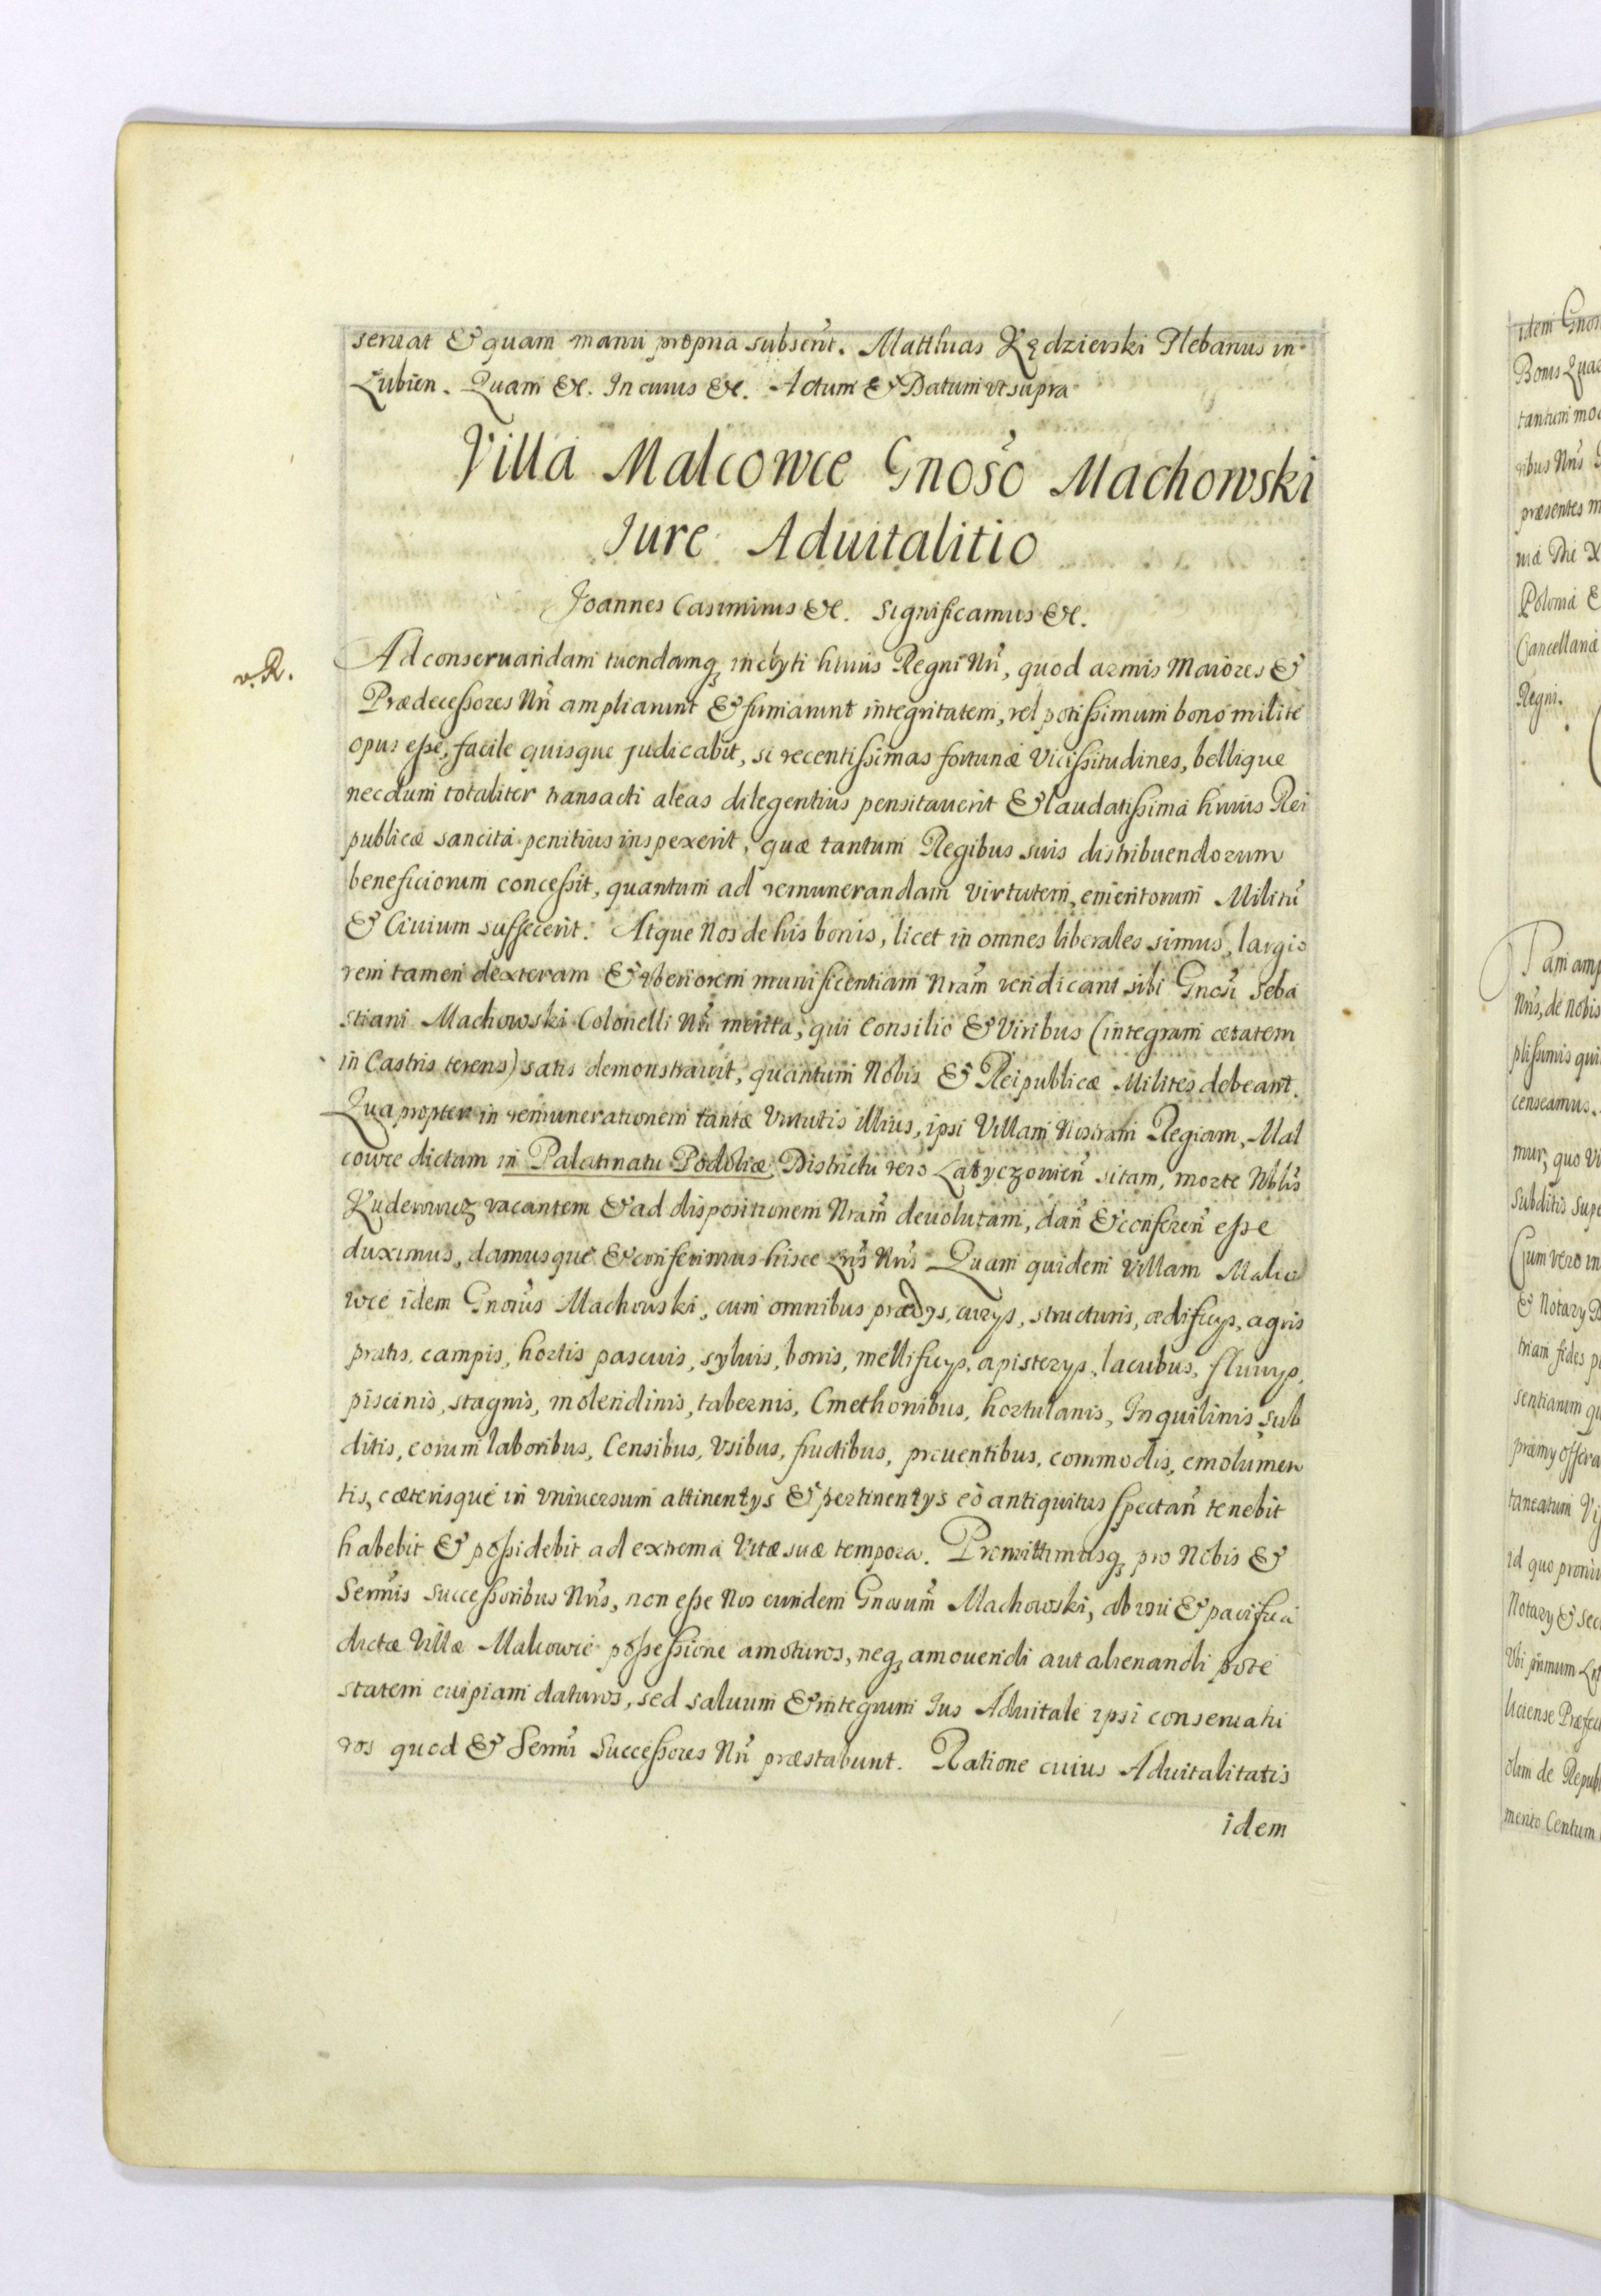 seruat & quam manu propria subscrit. Matthias Kędzierski Plebanus in
Lubien. Quam &c. In cuius &c. Actum & Datum vt supra
Villa Malcowce Gnoso Machowski
Iure Aduitalitio
Joannes Casimirus &c. Significamus &c.
v. R.
Ad conseruandam tuendamq, inclyti huius Regni Nri, quod armis Maiores &
Prædecessores Nri ampliarunt & firmarunt integritatem, vel potissimum bono milite
opus esse, facile quisque judicabit, si recentissimas fortunæ Vicissitudines, bellique
necdum totaliter transacti aleas dilegentius pensitauerit & laudatissima huius Rei
publicæ sancita penitius inspexerit, quæ tantum Regibus suis distribuendorum
beneficiorum concessit, quantum ad remunerandam virtutem, emeritorum Militu
& Ciuium suffecerit. Atque Nos de his bonis, licet in omnes liberales simus, largio
rem tamen dexteram & vberiorem munificentiam Nram vendicant sibi Gnosi Seba
stiani Machowski Colonelli Nri merita, qui Consilio & Viribus (integram ætatem
in Castris terens) satis demonstrauit, quantum Nobis & Reipublicæ Milites debeant.
Quapropter in remunerationem tantæ Virtutis illius, ipsi Villam Nostram Regiam, Mal
cowce dictam in Palatinatu Podoliæ Districtu vero Latyczowien sitam, morte Nblis
Kuderowicz vacantem & ad dispositionem Nram deuolutam, dan & conferen esse
duximus, damusque & conferimus hisce Lris Nris Quam quidem Villam Malco
wce idem Gnosus Machowski, cum omnibus prædys, curys, structuris, ædificys, agris
pratis, campis, hortis pascuis, syluis, borris, mellificys, apisterys, lacubus, fluuys,
piscinis, stagnis, molendinis, tabernis, Cmethonibus, hortulanis, Inquilinis, sub
ditis, eorum laboribus, Censibus, Vsibus, fructibus, prouentibus, commodis, emolumen
tis, cæterisque in vniuersum attinentys & pertinentys eo antiquitus spectan tenebit
habebit & possidebit ad extrema Vitæ suæ tempora. Promittimusq, pro Nobis &
Sermis Successoribus Nris, non esse Nos eundem Gnosum Machowski, ab vsu & pacifica
dictæ Villæ Malcowce possessione amoturos, neq, amouendi aut alienandi pote
statem cuipiam daturos, sed saluum & integrum Ius Aduitale ipsi conseruatu
ros quod & Sermi Successores Nri præstabunt. Ratione cuius Aduitalitatis
idem